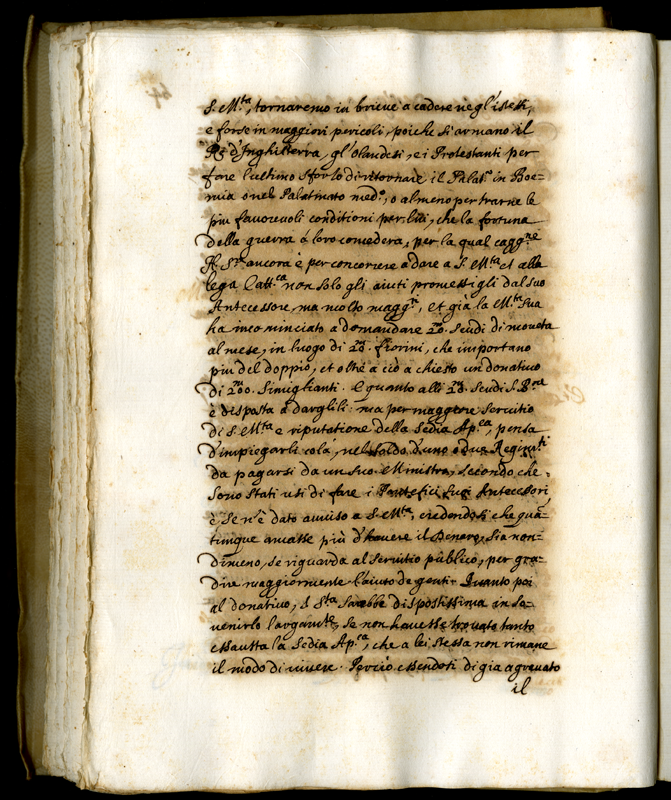 S. M.ta, tornaremo in brieve a cadere negl'istessi,
e forse in maggiori pericoli, poiche si armano il
Rè d'Inghilterra, gl'Olandesi, e i Protestanti per
fare l'ultimo sforzo di ritornare il Palat.o in Boe=
mia ò nel Palatinato med.o, o almeno per trarne le
piu favorevoli conditioni per lui, che la fortuna
della guerra à loro concederà, per la qual cagg.ne
N. S.re ancora è per concorrere a dare a S. M.tà et alla
lega Catt.ca non solo gli aiuti promessigli dal suo
Antecessore, ma molto magg.ri, et già la M.ta Sua
ha incominciato a domandare 20.m scudi di moneta
al mese, in luogo di 20.m fiorini, che importano
piu del doppio, et oltre a ciò à chiesto un donativo
di 200.m simiglianti. E quanto alli 20.m scudi S. B.ne
è disposta à darglili: ma per maggiore servitio
di S. M.ta e riputatione della Sedia Ap.ca, pensa
d'impiegarli colà, nel soldo d'uno o dua Regim.ti
da pagarsi da un suo Ministro, secondo che
sono stati usi di fare i Pontefici suoi Antecessori,
e se n'è dato avviso a S. M.ta, credendosi che quan=
tunque amasse più d'havere il denaro, sia non=
dimeno, se riguarda al servitio publico, per gra=
dire maggiormente l'aiuto de genti. Quanto poi
al donativo, S. S.ta sarebbe dispostissima in so=
venirlo largam.te, se non havesse trovato tanto
essausta la Sedia Ap.ca, che a lei stessa non rimane
il modo di vivere. Perciò essendosi di gia aggravato
il